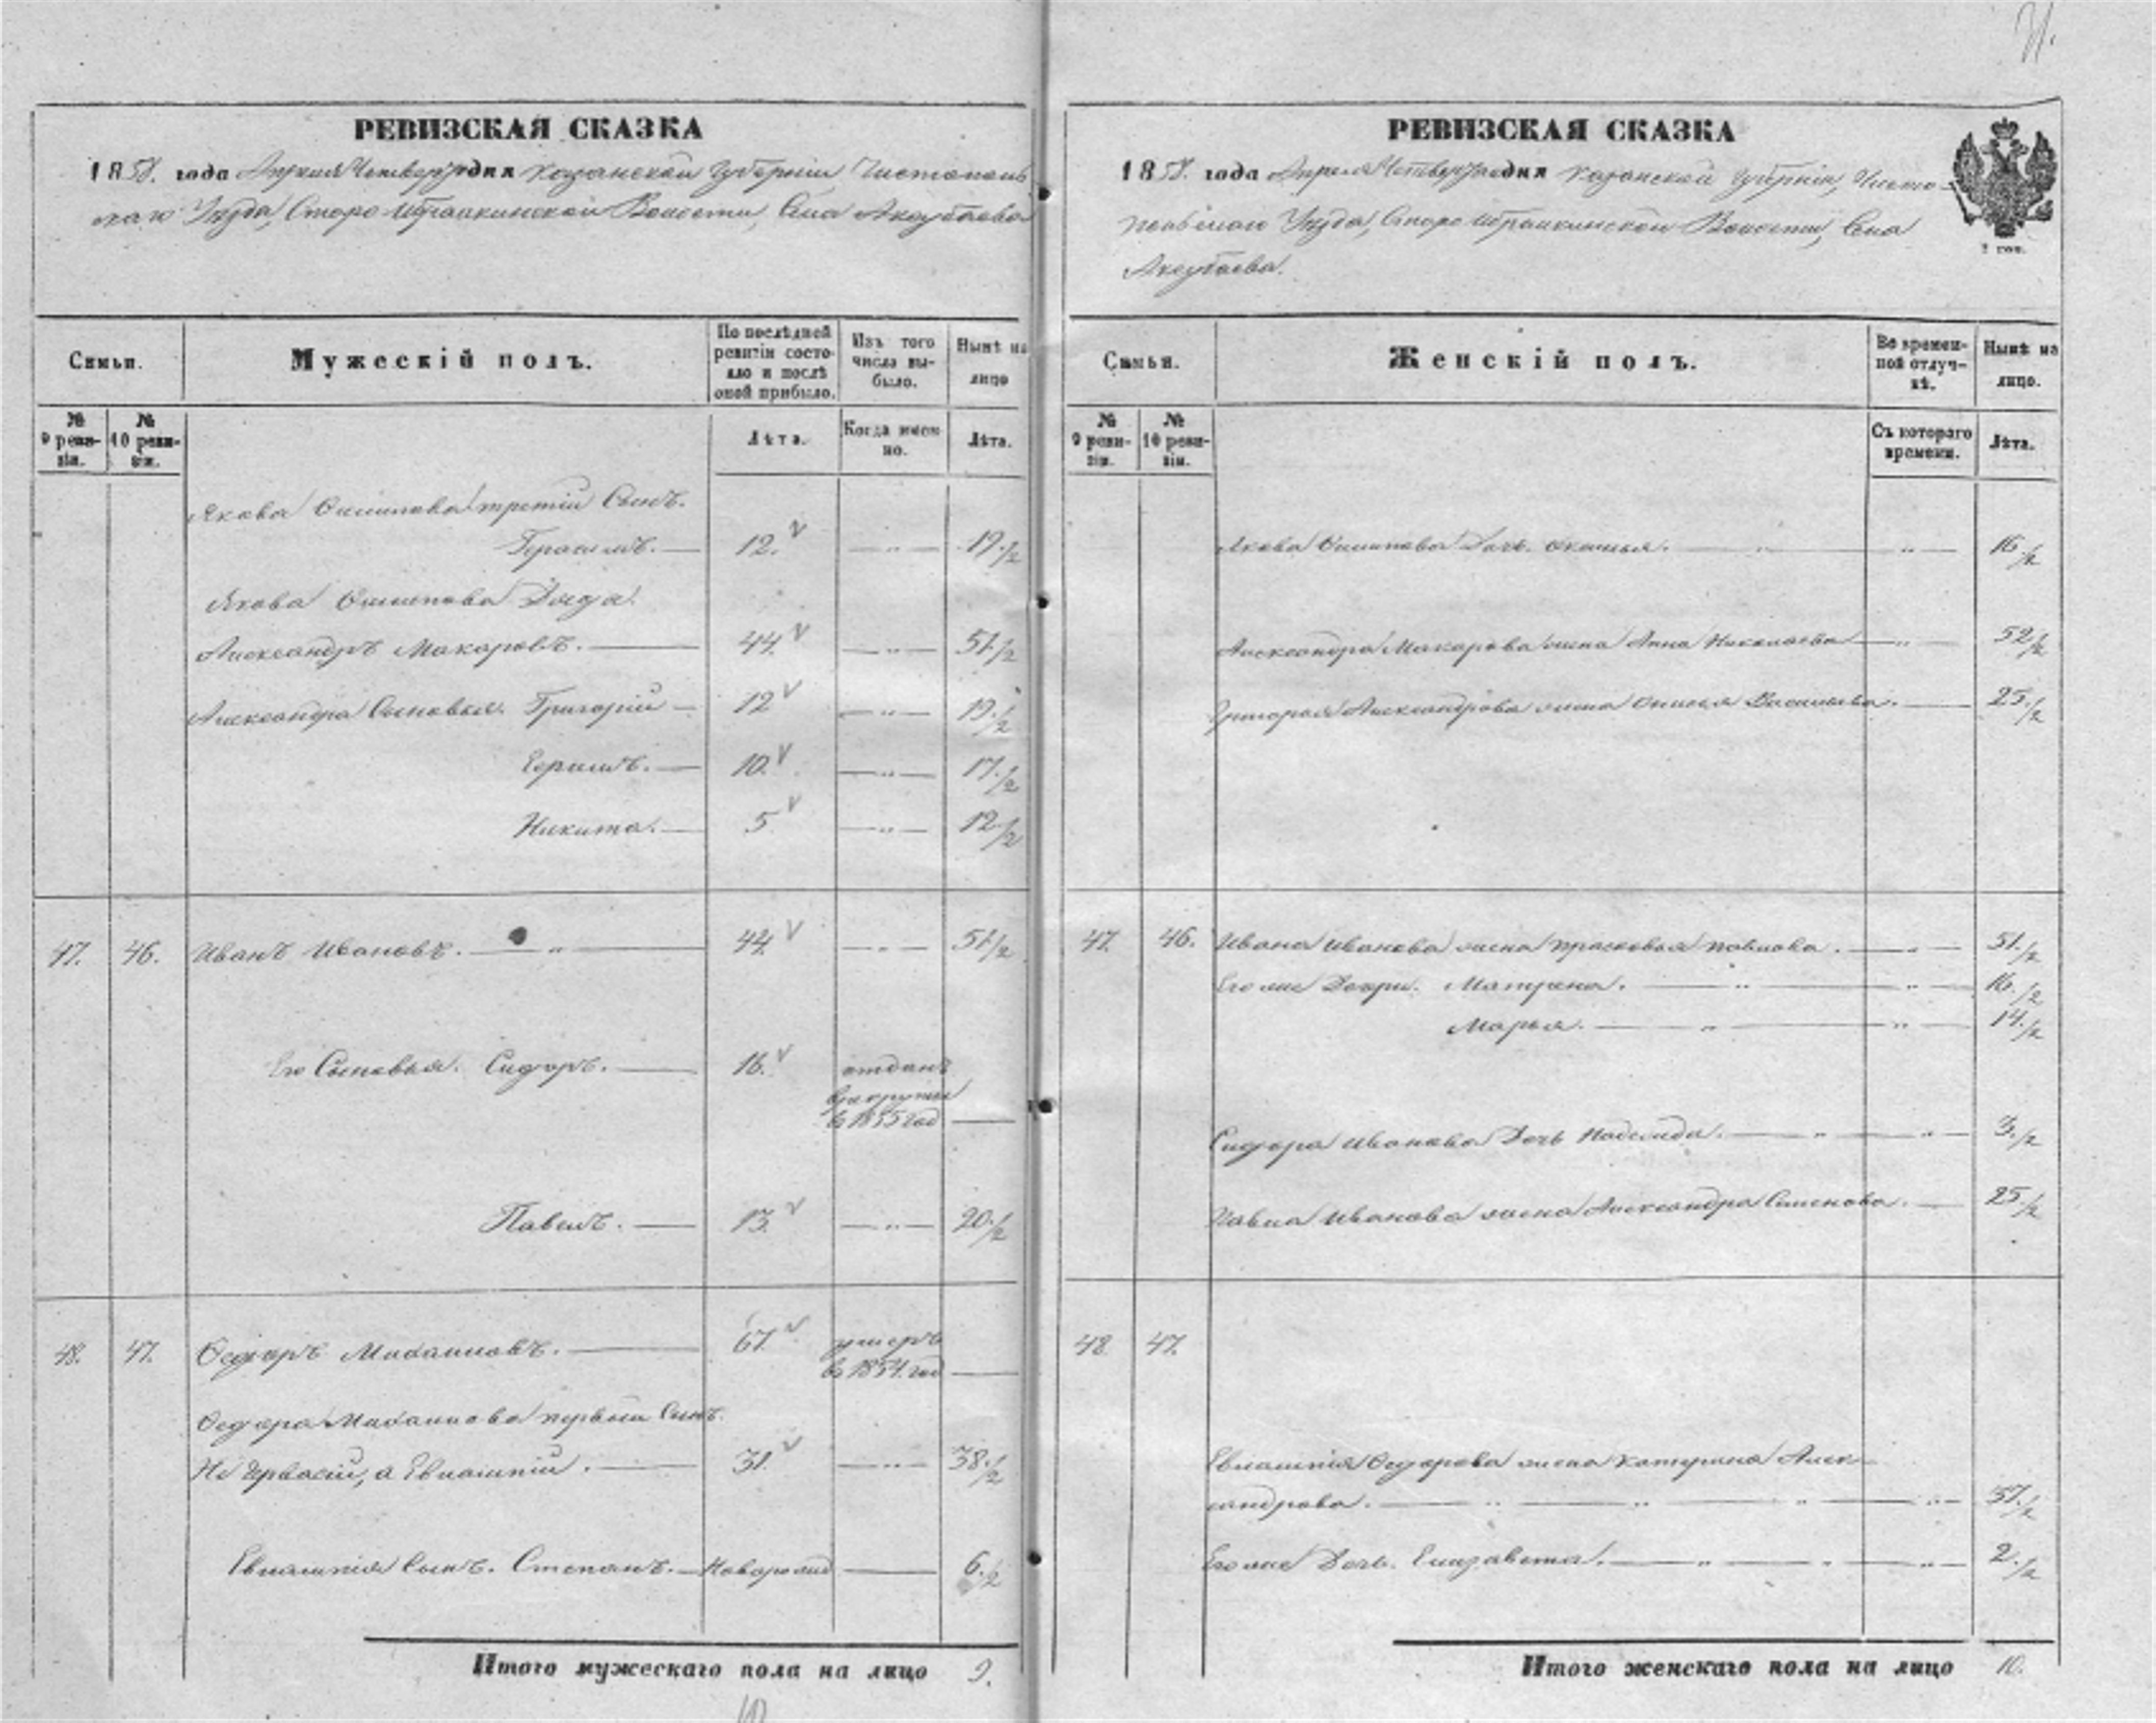 71.
РЕВИЗСКАЯ СКАЗКА
1858. года Апреля Четвертого дня Казанской Губернiи Чистополь
скаго Уѣзда, Старо Ибрайкинской Волости, Села Аксубаева
Семьи.
Мужескiй полъ.
По послѣдней ревизiи состояло и послѣ оной прибыло.
Изъ того числа выбыло.
Нынѣ на лицо
№ 9 ревизiи.
№ 10 ревизiи.
Лѣта.
Когда именно.
Лѣта.
Якова Осипова третiй Сынъ.
Герасимъ. 12. " 19.1/2
Якова Осипова Дядя.
Александръ Макаровъ. 44. " 51.1/2
Александра Сыновья. Григорiй 12 " 19.1/2
Ефимъ. 10. " 17.1/2
Никита. 5 " 12.1/2
47. 46. Иванъ Ивановъ. " 44. " 51.1/2
Его Сыновья. Сидоръ. 16. отданъ
в рекруты
в 1855 год
Павелъ. 13. " 20.1/2
48. 47. Ѳедоръ Михайловъ. 67. умеръ
в 1854. год
Ѳедора Михайлова первый Сынъ.
Не Ервасiй, а Евлампiй. 31. " 38.1/2
Евлампiя Сынъ. Степанъ. Новорожд 6.1/2
Итого мужескаго пола на лицо 9.
РЕВИЗСКАЯ СКАЗКА
1858. года Апреля Четвертаго дня Казанской Губернiи, Чисто-
польскаго Уѣзда, Старо Ибрайкинской Волости, Села
Аксубаева.
Семьи.
Женскiй полъ.
Во временной отлучкѣ.
Нынѣ на лицо.
№ 9 ревизiи.
№ 10 ревизiи.
Съ котораго времени.
Лѣта.
Якова Осипова Дочь. " " 16.1/2
Александра Макарова жена Анна Николаева " 52.1/2
Григорья Александрова жена Васильева. 25.1/2
47. 46. Ивана Иванова жена Прасковья Павлова. " 51.1/2
Его же Дочери. Матрена. " " 16.1/2
Марья. " " 14.1/2
Сидора Иванова Дочь Надежда. " " 3.1/2
Павла Иванова жена Александра Семенова. 25.1/2
48 47.
Евлампiя Ѳедорова жена Катерина Алек-
сандрова. " " " " 37.1/2
Его же Дочь. Елизавета. " " " 2.1/2
Итого женскаго пола на лицо 10.